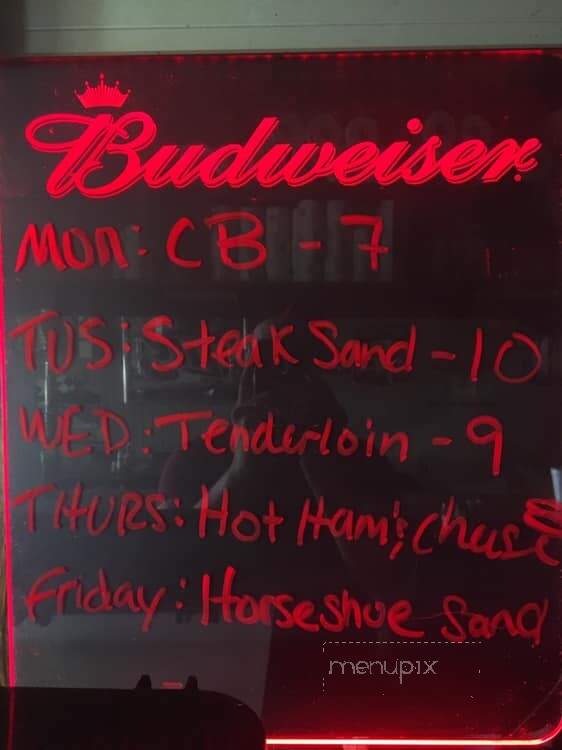 Budweiser
Mon: CB - 7
TUS: Steak Sand - 10
WED: Tenderloin - 9
THURS: Hot Ham & Chuse
Friday: Horseshoe Sand
menupix